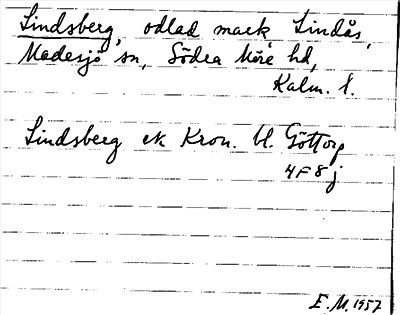 Lindsberg, odlad mark, Lindås,
Madesjö sn, Södra Möre hd,
Kalm. l.
Lindsberg ek Kron. bl. Göttorp
4F8j
E. M. 1957